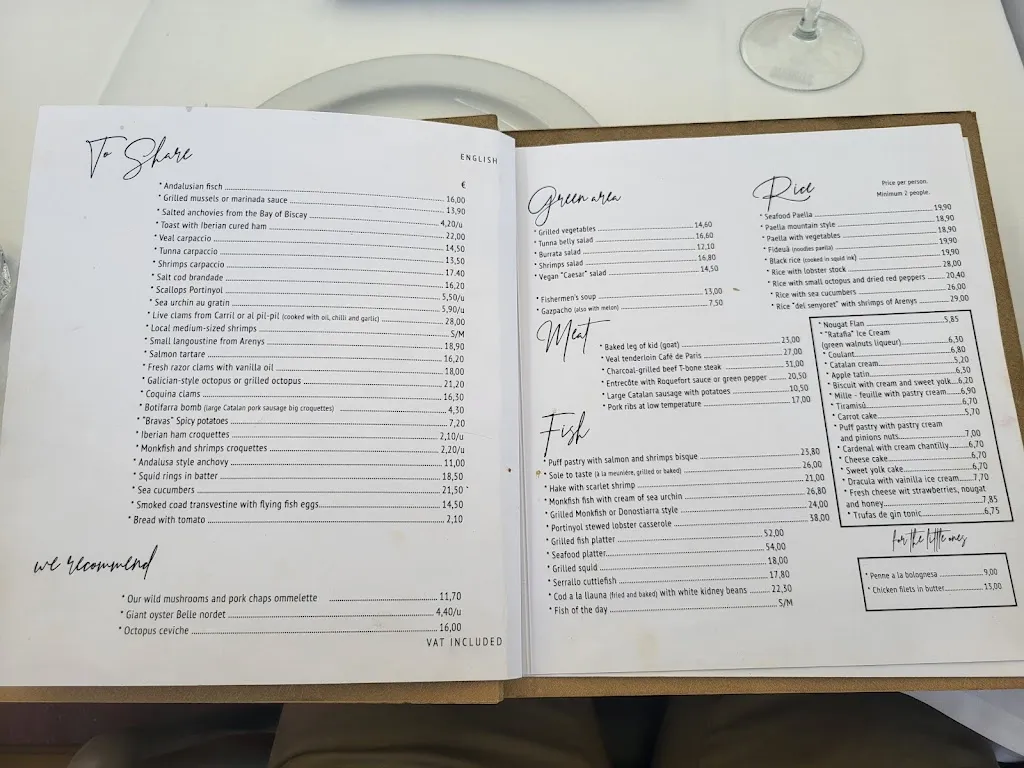 To Share
ENGLISH
€
* Andalusian fisch 16,00
* Grilled mussels or marinada sauce 13,90
* Salted anchovies from the Bay of Biscay 4,20/u
* Toast with Iberian cured ham 22,00
* Veal carpaccio 14,50
* Tunna carpaccio 13,50
* Shrimps carpaccio 17,40
* Salt cod brandade 16,20
* Scallops Portinyol 5,50/u
* Sea urchin au gratin 5,90/u
* Live clams from Carril or al pil-pil (cooked with oil, chilli and garlic) 28,00
* Local medium-sized shrimps S/M
* Small langoustine from Arenys 18,90
* Salmon tartare 16,20
* Fresh razor clams with vanilla oil 18,00
* Galician-style octopus or grilled octopus 21,20
* Coquina clams 16,30
* Botifarra bomb (large Catalan pork sausage big croquettes) 4,30
* "Bravas" Spicy potatoes 7,20
* Iberian ham croquettes 2,10/u
* Monkfish and shrimps croquettes 2,20/u
* Andalusa style anchovy 11,00
* Squid rings in batter 18,50
* Sea cucumbers 21,50
* Smoked coad transvestine with flying fish eggs 14,50
* Bread with tomato 2,10
we recommend
* Our wild mushrooms and pork chaps ommelette 11,70
* Giant oyster Belle nordet 4,40/u
* Octopus ceviche 16,00
VAT INCLUDED
Green area
* Grilled vegetables 14,60
* Tunna belly salad 16,60
* Burrata salad 12,10
* Shrimps salad 16,80
* Vegan "Caesar" salad 14,50
* Fishermen's soup 13,00
* Gazpacho (also with melon) 7,50
Meat
* Baked leg of kid (goat) 23,00
* Veal tenderloin Café de Paris 27,00
* Charcoal-grilled beef T-bone steak 31,00
* Entrecôte with Roquefort sauce or green pepper 20,50
* Large Catalan sausage with potatoes 10,50
* Pork ribs at low temperature 17,00
Fish
* Puff pastry with salmon and shrimps bisque 23,80
* Sole to taste (à la meunière, grilled or baked) 26,00
* Hake with scarlet shrimp 21,00
* Monkfish fish with cream of sea urchin 26,80
* Grilled Monkfish or Donostiarra style 24,00
* Portinyol stewed lobster casserole 38,00
* Grilled fish platter 52,00
* Seafood platter 54,00
* Grilled squid 18,00
* Serrallo cuttlefish 17,80
* Cod a la llauna (fried and baked) with white kidney beans 22,30
* Fish of the day S/M
Rice
Price per person.
Minimum 2 people.
* Seafood Paella 19,90
* Paella mountain style 18,90
* Paella with vegetables 18,90
* Fideuà (noodles paella) 19,90
* Black rice (cooked in squid ink) 19,90
* Rice with lobster stock 28,00
* Rice with small octopus and dried red peppers 20,40
* Rice with sea cucumbers 26,00
* Rice "del senyoret" with shrimps of Arenys 29,00
* Nougat Flan 5,85
* "Ratafia" Ice Cream
(green walnuts liqueur) 6,30
* Coulant 6,80
* Catalan cream 5,20
* Apple tatin 6,30
* Biscuit with cream and sweet yolk 6,20
* Mille - feuille with pastry cream 6,90
* Tiramisú 6,70
* Carrot cake 5,70
* Puff pastry with pastry cream
and pinions nuts 7,00
* Cardenal with cream chantilly 6,70
* Cheese cake 6,70
* Sweet yolk cake 6,70
* Dracula with vainilla ice cream 7,70
* Fresh cheese wit strawberries, nougat
and honey 7,85
* Trufas de gin tonic 6,75
for the little ones
* Penne a la bolognesa 9,00
* Chicken filets in butter 13,00